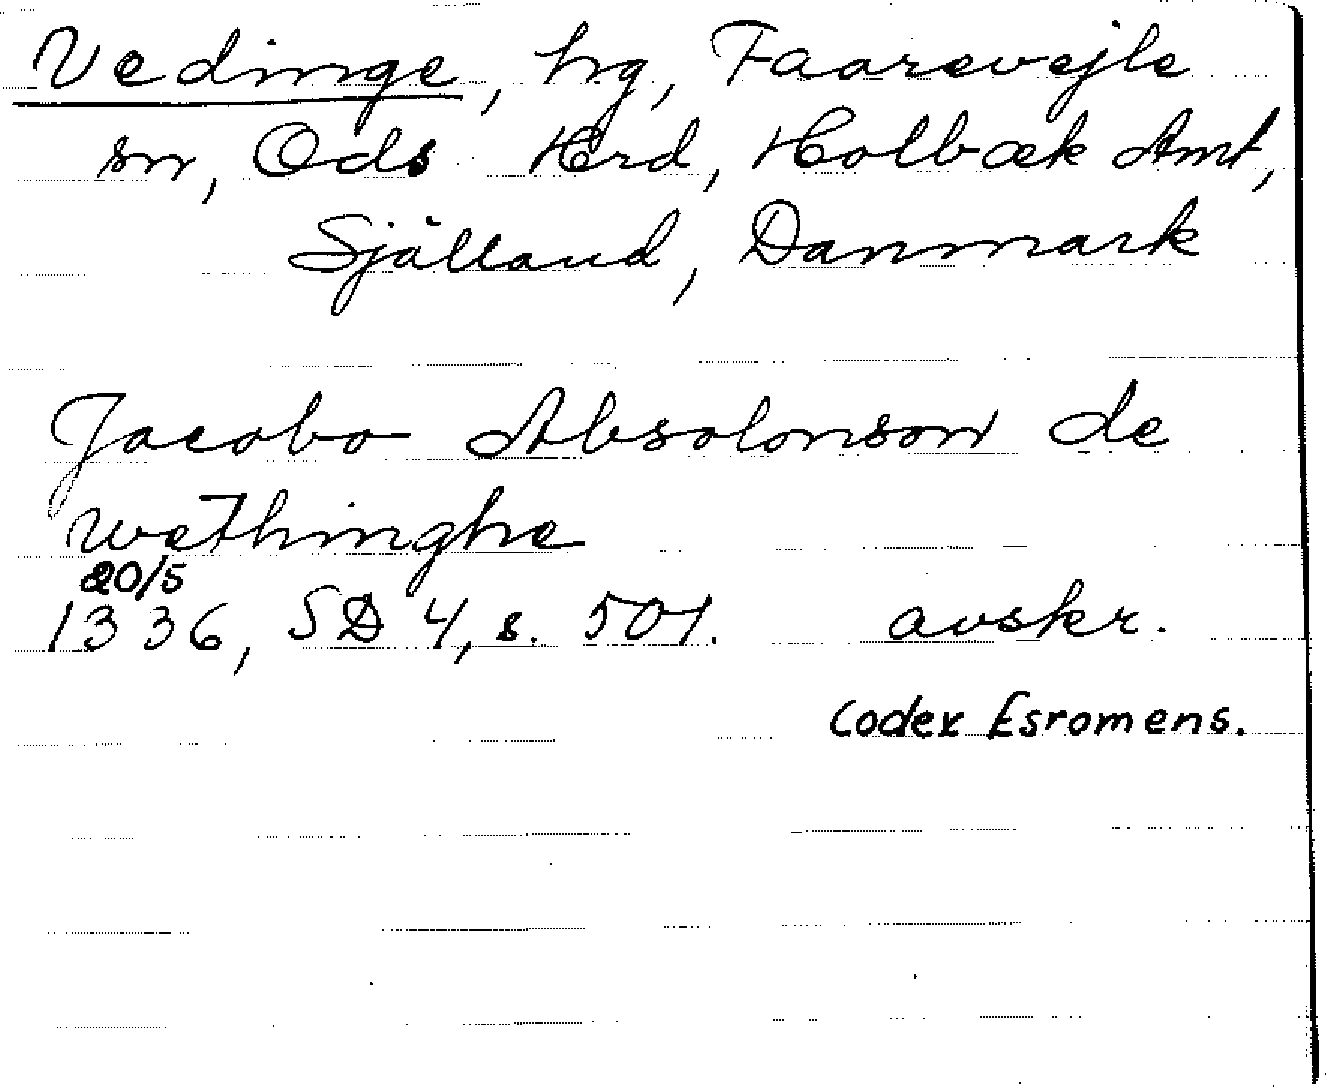 Vedinge, hg, Faarevejle
sn, Ods Hrd, Holbæk Amt,
Själland, Danmark
Jacobo Absolonson de
Wethinghe
20/5
1336, SD 4, s. 501. avskr.
Codex Esromens.